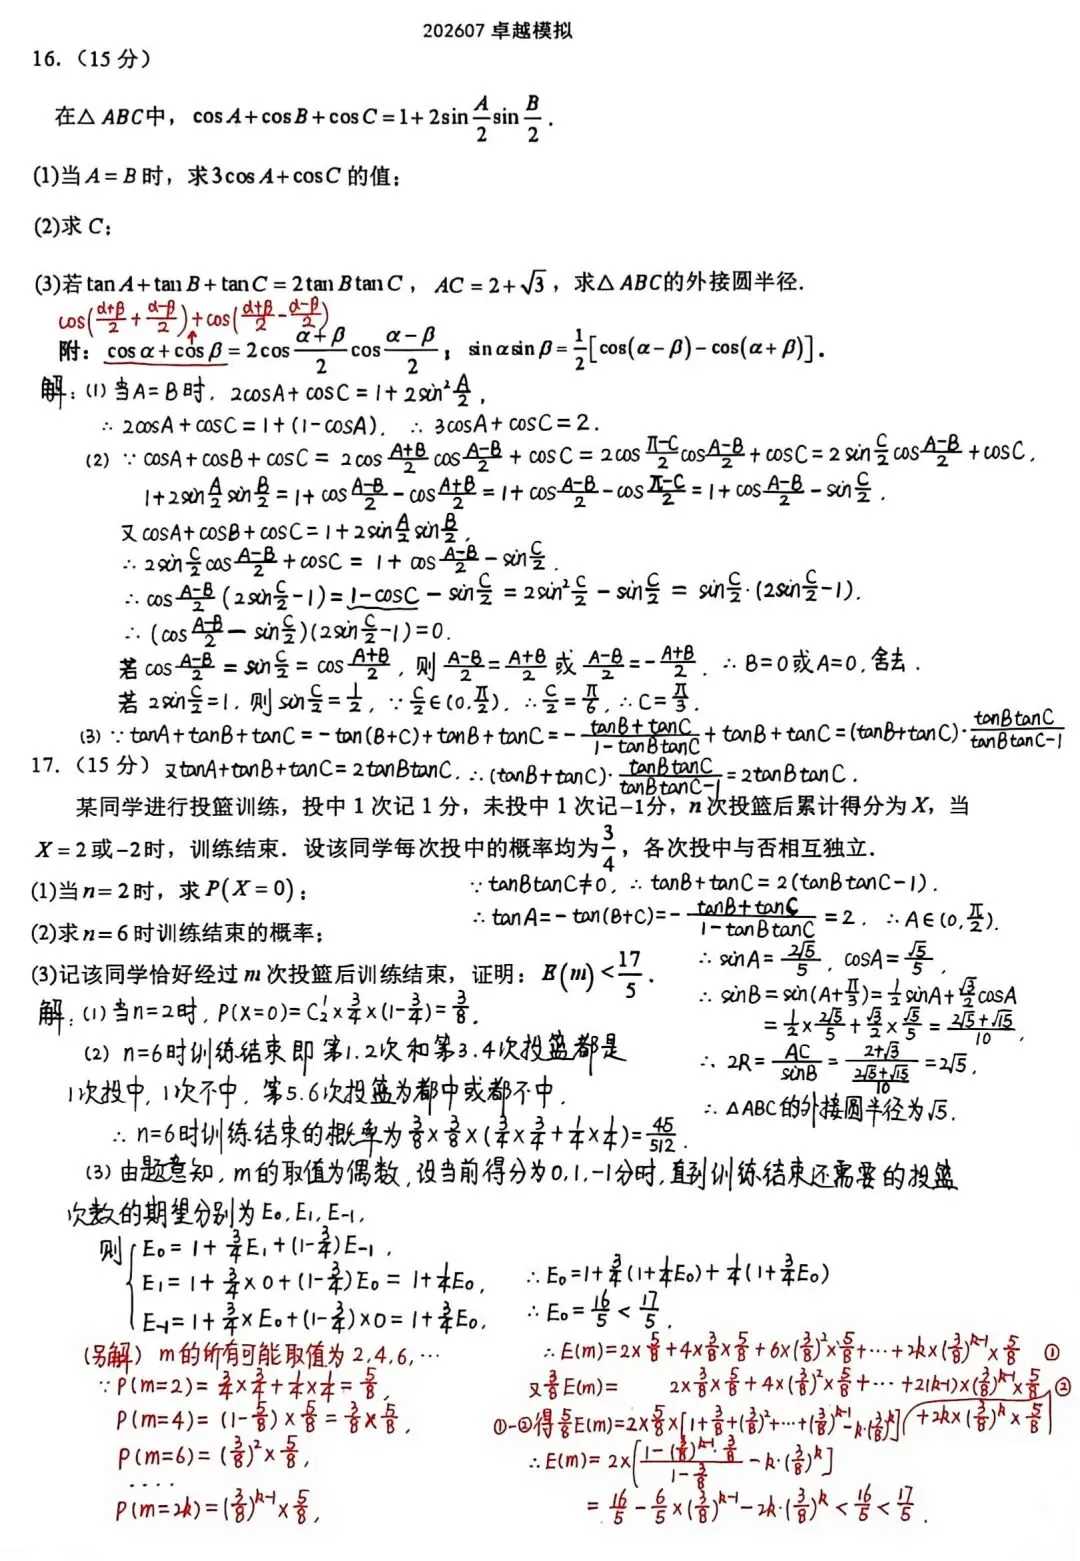 202607 卓越模拟
16.（15 分）
在△ ABC中，cos A+cos B+cos C=1+2sin A/2 sin B/2 .
(1)当 A=B 时，求3cos A+cosC 的值；
(2)求 C；
(3)若 tan A+tan B+tan C=2tan B tan C， AC=2+√3，求△ ABC的外接圆半径.
cos(α+β/2 + α-β/2)+cos(α+β/2 - α-β/2)
附：cos α+cos β=2cos α+β/2 cos α-β/2；sin α sin β=1/2[cos(α-β)-cos(α+β)].
解：(1) 当A=B时，2cosA+cosC=1+2sin²A/2，
∴ 2cosA+cosC=1+(1-cosA). ∴ 3cosA+cosC=2.
(2) ∵ cosA+cosB+cosC=2cos A+B/2 cos A-B/2+cosC=2cos π-C/2 cos A-B/2+cosC=2sin C/2 cos A-B/2+cosC,
1+2sin A/2 sin B/2=1+cos A-B/2-cos A+B/2=1+cos A-B/2-cos π-C/2=1+cos A-B/2-sin C/2.
又cosA+cosB+cosC=1+2sin A/2 sin B/2,
∴ 2sin C/2 cos A-B/2+cosC=1+cos A-B/2-sin C/2.
∴ cos A-B/2(2sin C/2-1)=1-cosC-sin C/2=2sin²C/2-sin C/2=sin C/2·(2sin C/2-1).
∴ (cos A-B/2-sin C/2)(2sin C/2-1)=0.
若cos A-B/2=sin C/2=cos A+B/2，则 A-B/2=A+B/2 或 A-B/2=-A+B/2. ∴ B=0或A=0，舍去.
若 2sin C/2=1，则 sin C/2=1/2，∵ C/2∈(0,π/2). ∴ C/2=π/6. ∴ C=π/3.
(3) ∵ tanA+tanB+tanC=-tan(B+C)+tanB+tanC=-tanB+tanC/1-tanBtanC+tanB+tanC=(tanB+tanC)·tanBtanC/tanBtanC-1
17.（15 分）又tanA+tanB+tanC=2tanBtanC. ∴ (tanB+tanC)·tanBtanC/tanBtanC-1=2tanBtanC.
某同学进行投篮训练，投中 1 次记 1 分，未投中 1 次记-1分，n 次投篮后累计得分为 X，当
X=2或-2时，训练结束．设该同学每次投中的概率均为3/4，各次投中与否相互独立．
(1)当 n=2时，求 P(X=0)；
∵ tanBtanC≠0. ∴ tanB+tanC=2(tanBtanC-1).
(2)求 n=6 时训练结束的概率；
∴ tanA=-tan(B+C)=-tanB+tanC/1-tanBtanC=2. ∴ A∈(0,π/2).
(3)记该同学恰好经过 m 次投篮后训练结束，证明：E(m)<17/5.
∴ sinA=2√5/5，cosA=√5/5，
∴ sinB=sin(A+π/3)=1/2sinA+√3/2cosA
=1/2×2√5/5+√3/2×√5/5=2√5+√15/10,
∴ 2R=AC/sinB=2+√3/2√5+√15/10=2√5,
∴ △ABC的外接圆半径为√5.
解：(1) 当n=2时，P(X=0)=C₂¹×3/4×(1-3/4)=3/8.
(2) n=6时训练结束即第1.2次和第3.4次投篮都是
1次投中，1次不中，第5.6次投篮为都中或都不中，
∴ n=6时训练结束的概率为3/8×3/8×(3/4×3/4+1/4×1/4)=45/512.
(3) 由题意知，m的取值为偶数，设当前得分为0,1,-1分时，直到训练结束还需要的投篮
次数的期望分别为E₀,E₁,E₋₁,
则{E₀=1+3/4E₁+(1-3/4)E₋₁,
E₁=1+3/4×0+(1-3/4)E₀=1+1/4E₀,
E₋₁=1+3/4×E₀+(1-3/4)×0=1+3/4E₀,
∴ E₀=1+3/4(1+1/4E₀)+1/4(1+3/4E₀)
∴ E₀=16/5<17/5.
(另解) m的所有可能取值为2,4,6,…
∵ P(m=2)=3/4×3/4+1/4×1/4=5/8,
P(m=4)=(1-5/8)×5/8=3/8×5/8,
P(m=6)=(3/8)²×5/8,
....
P(m=2k)=(3/8)ᵏ⁻¹×5/8,
∴ E(m)=2×5/8+4×3/8×5/8+6×(3/8)²×5/8+…+2k×(3/8)ᵏ⁻¹×5/8 ①
又3/8E(m)=2×3/8×5/8+4×(3/8)²×5/8+…+2(k-1)×(3/8)ᵏ⁻¹×5/8 ②
+2k×(3/8)ᵏ×5/8
①-②得5/8E(m)=2×5/8×[1+3/8+(3/8)²+…+(3/8)ᵏ⁻¹-k·(3/8)ᵏ]
∴ E(m)=2×[1-(3/8)ᵏ⁻¹·3/8/1-3/8-k·(3/8)ᵏ]
=16/5-6/5×(3/8)ᵏ⁻¹-2k·(3/8)ᵏ<16/5<17/5.